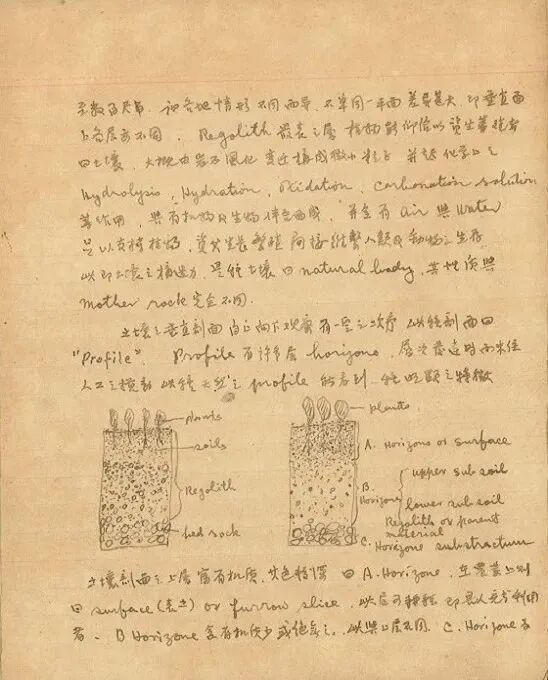 至数百尺者，神各地情形不同而异，不单同一平面差异甚大，即垂直面
上各層亦不同。Regolith 最表之層 植物對仰借以資生蕃殖者
曰土壤，大概由岩石風化 变迁積成微小粒子 并起化学上之
Hydrolysis, Hydration, Oxidation, Carbonation solution
等作用，與有机物及生物伴合而成，并含有 air 與 water
足以支持植物，資其生長繁殖 间接維繫人類及動物之生存
此即土壤之構造力，是种土壤曰 natural body，其性質與
mother rock 完全不同.
土壤之垂直剖面由上向下观察有一定之次序 此种剖面曰
"Profile". Profile 有許多層 horizons，層次 未经
人工之擾動 此種天然之 profile 能看到 种明顯之特徵
plants
soils
Regolith
bed rock
plants
A. Horizons or surface
B Horizone
upper sub soil
lower sub soil
Regolith or parent material
C. Horizone substractum
土壤剖面之上層富有机质，其色稍深 曰 A. Horizone，在農業上則
曰 surface (表土) or furrow slice，此层可耕种 即農人充分利用
者。B Horizone 含有机质少或绝無之，此與上层不同. C. Horizone 为